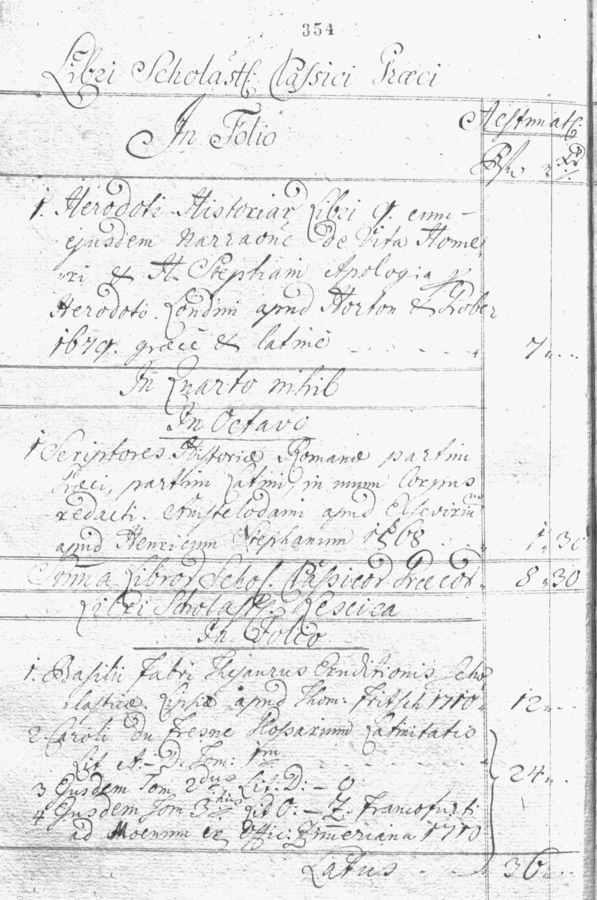 354
Libri Scholast: Classici Græci
In Folio
Aestimat:
Rfn xr
1. Herodoti Historiar Libri 9. cum
ejusdem Narraonē de Vita Home
ri & H. Stephani Apologia p
Herodoto. Londini apud Horton & Grober
1679. græcē & latinē
7 ,,
In Quarto nihil
In Octavo
1 Scriptores Historiæ Romanæ partim
Græci, partim Latini, in unum Corpus
redacti. Amstelodami apud Elsevirium
apud Henricum Stephanum 1568
1 ,, 30
Summa Libror Schol. Classicor Græcor
8 ,, 30
Libri Scholast:
In Folio
1. Basilii Fabri Thesaurus Eruditionis Scho
lasticæ. Lipsiæ apud Thom: Fritsch 1710
12 ,,
2. Caroli du Fresne Glossarium Latinitatis
Lit A-D. Tom: 1m
3 Ejusdem Tom. 2dus Lit: D: - O
24 ,,
4 Ejusdem Tom 3tius Lit O: - Z. Francofurti
ad Moenum ex Offic: Zuneriana 1710
Latus
36